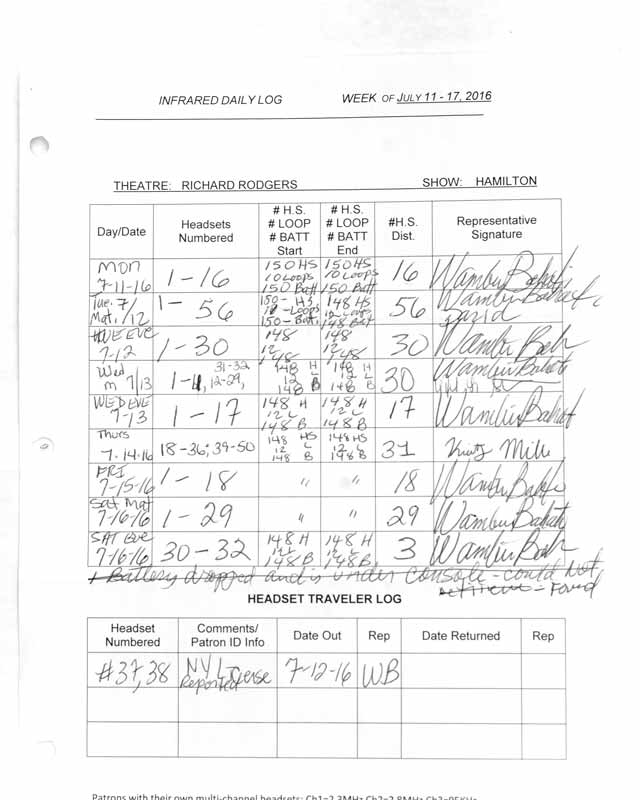 INFRARED DAILY LOG WEEK OF JULY 11 - 17, 2016
THEATRE: RICHARD RODGERS SHOW: HAMILTON
Day/Date
Headsets
Numbered
# H.S.
# LOOP
# BATT
Start
# H.S.
# LOOP
# BATT
End
#H.S.
Dist.
Representative
Signature
MON
7-11-16
1-16
150 HS
10 Loops
150 Batt
150 HS
10 Loops
150 Batt
16
Tue. 7/
Mat. /12
1- 56
150- HS
-Loops
150- Batt.
148 HS
12 Loops
148 Bat
56
David
TUE EVE
7-12
1-30
148
12
148
148
12
148
30
Wed
m 7/13
31-32
12-29,
148 H
12 L
148 B
148 H
12 L
148 B
30
WED EVE
7-13
1-17
148 H
12 L
148 B
148 H
12 L
148 B
17
Thurs
7-14-16
18-36; 39-50
148 HS
12 L
148 B
148 HS
12 L
148 B
31
FRI
7-15-16
1-18
"
"
18
Sat Mat
7-16-16
1-29
"
"
29
SAT EVE
7-16-16
30-32
148 H
12 L
148 B
148 H
12 L
148 B
3
1 Battery dropped and is under console - could not
retrieve - Found
HEADSET TRAVELER LOG
Headset
Numbered
Comments/
Patron ID Info
Date Out
Rep
Date Returned
Rep
#37,38
NY License
Reported
7-12-16
WB
Patrons with their own multi-channel headsets: Ch1=2.3MHz Ch2=2.8MHz Ch3=95KHz